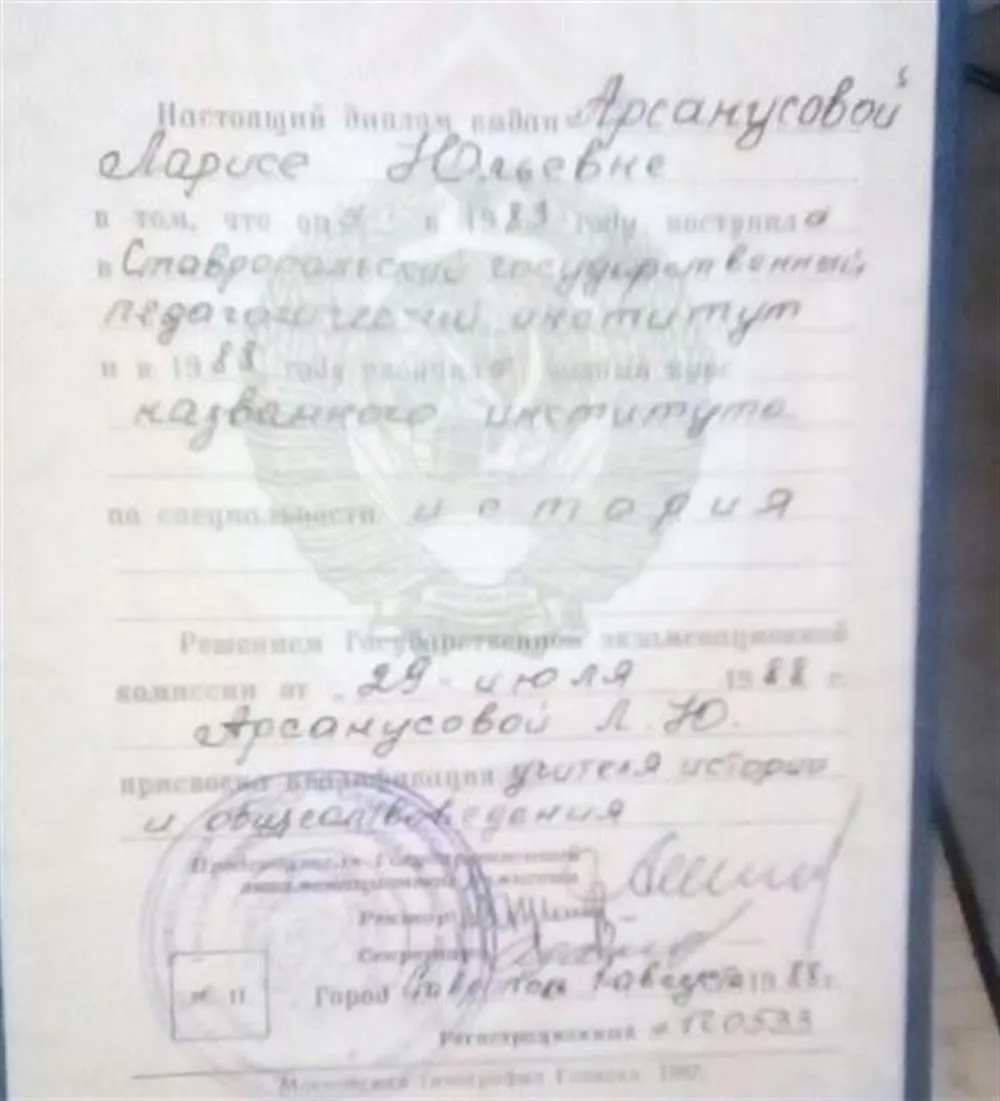 Настоящий диплом выдан Арсанусовой
Ларисе Юльевне
в том, что она в 1983 году поступила
в Ставропольский государственный
педагогический институт
и в 1988 году окончила полный курс
названного института
по специальности история
Решением Государственной экзаменационной
комиссии от 29 июля 1988 г.
Арсанусовой Л. Ю.
присвоена квалификация учителя истории
и обществоведения
Председатель Государственной
экзаменационной комиссии
Ректор
Секретарь
М. П.
Город Ставрополь 1 августа 1988 г.
Регистрационный №
Московская типография Гознака. 198